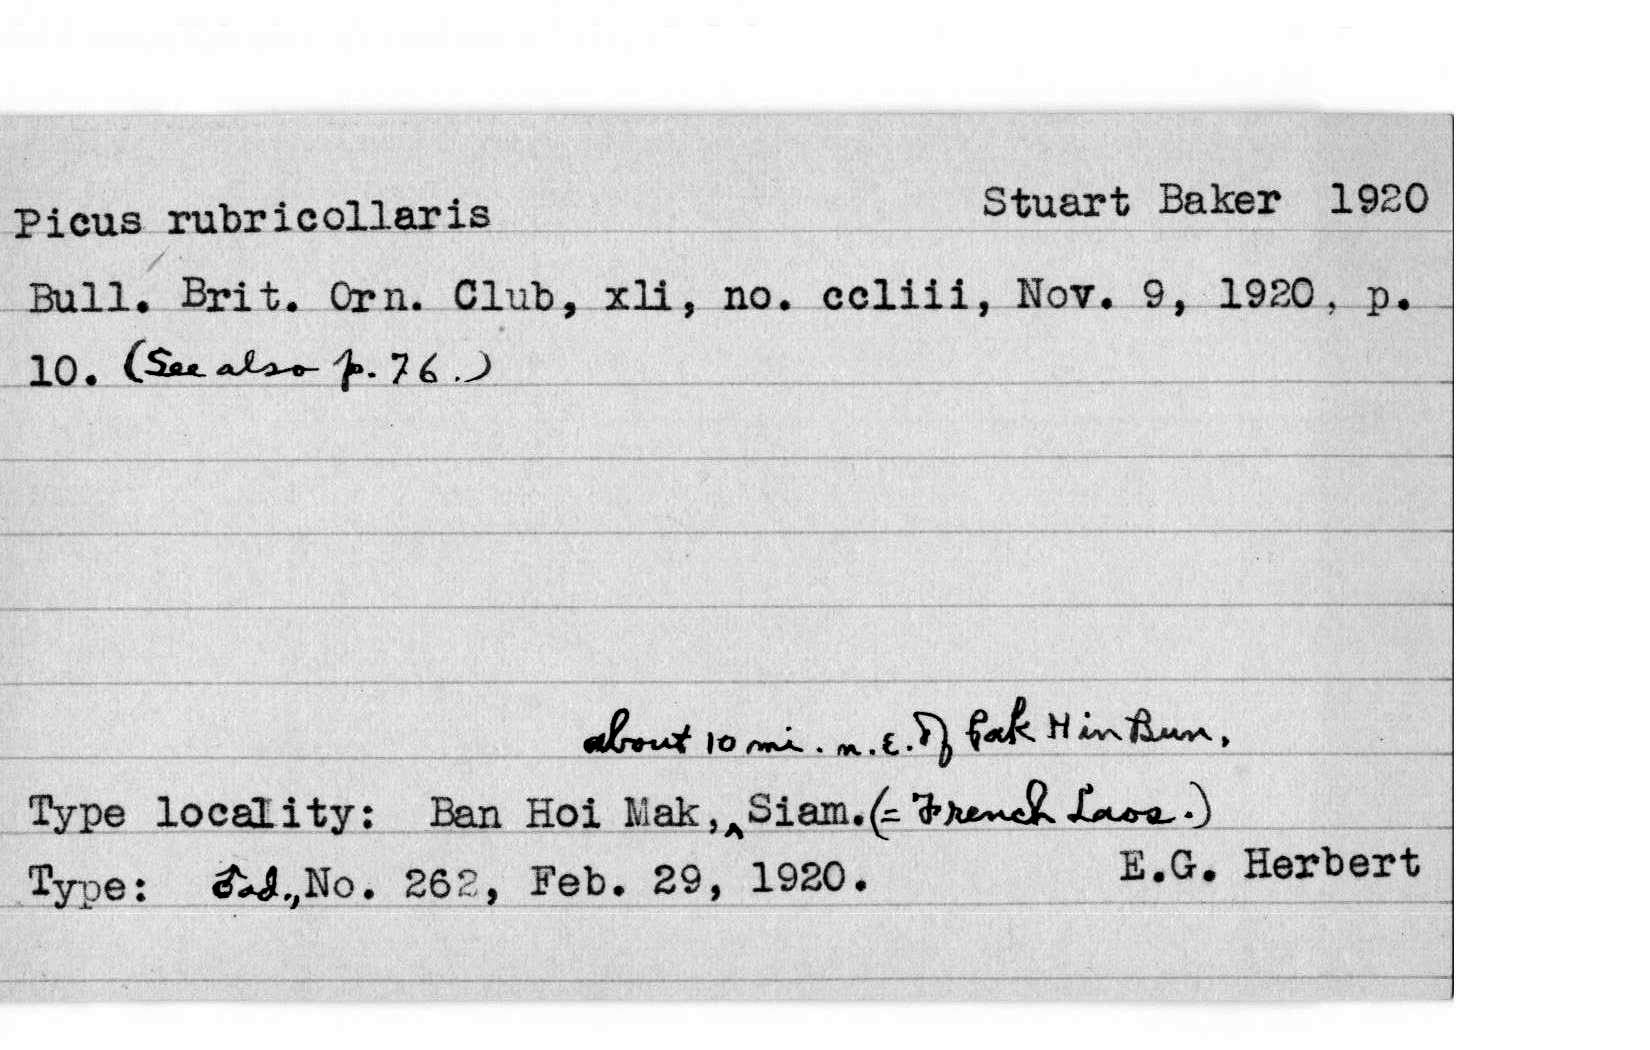 Picus rubricollaris Stuart Baker 1920
Bull. Brit. Orn. Club, xli, no. ccliii, Nov. 9, 1920, p.
10. (See also p. 76.)
about 10 mi. n.e. of Pak Hin Bun,
Type locality: Ban Hoi Mak,‸ Siam. (= French Laos.)
Type: ♂ ad., No. 262, Feb. 29, 1920. E.G. Herbert